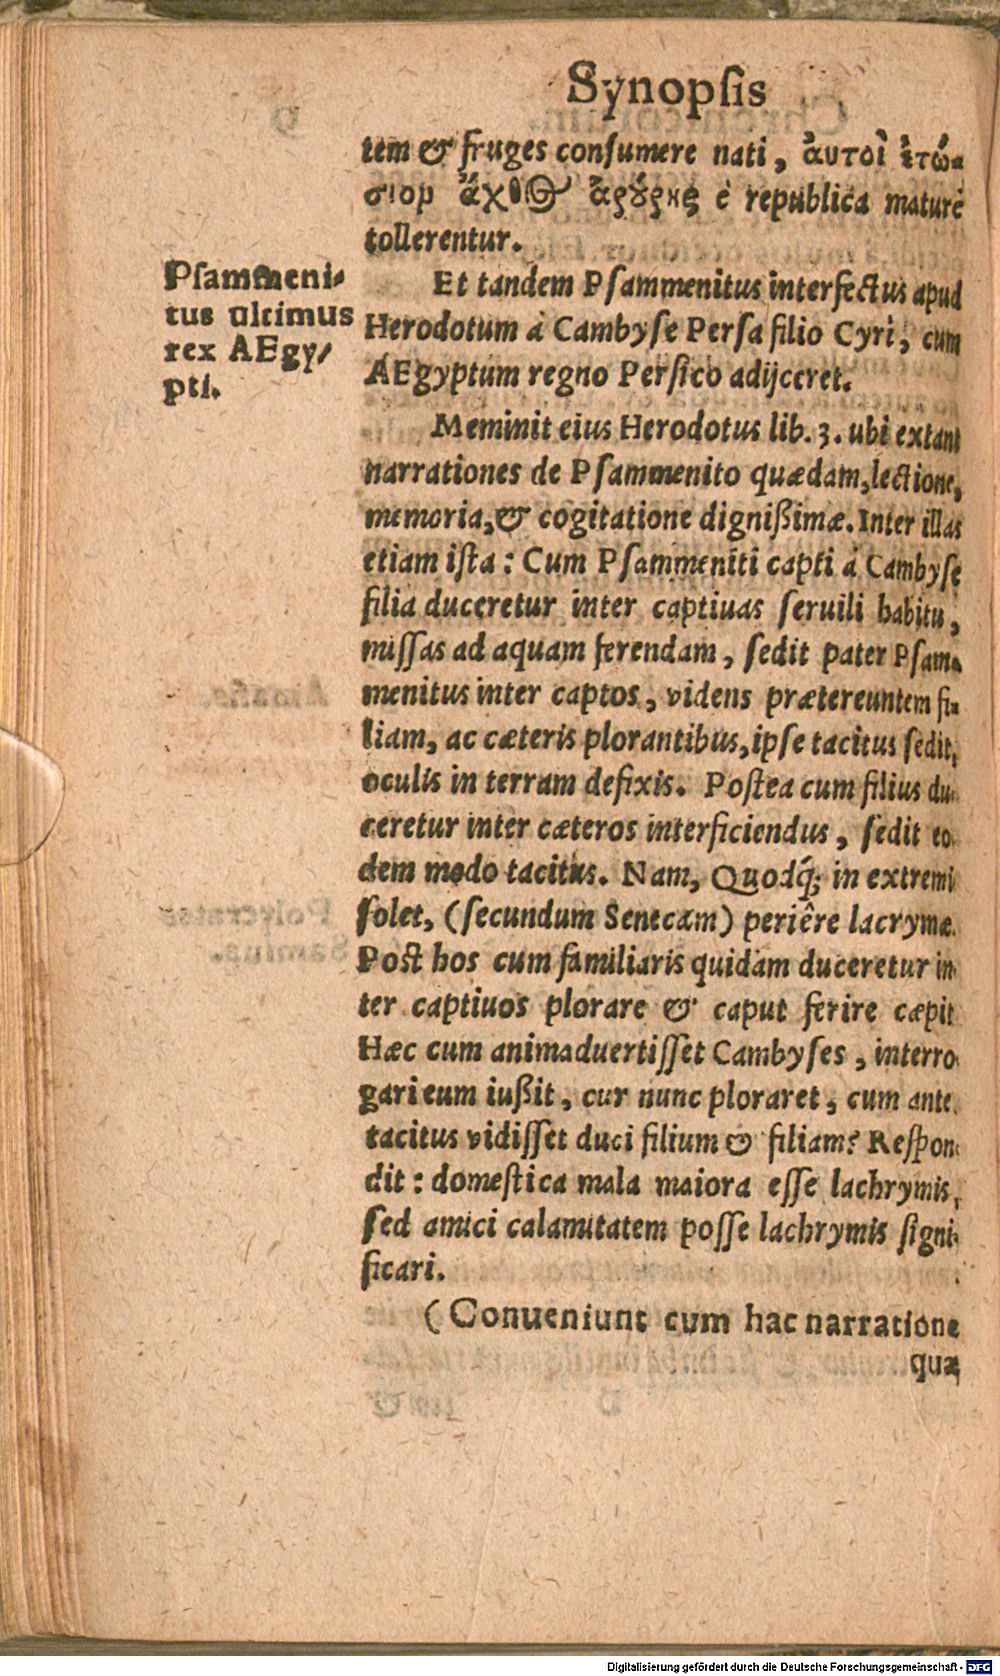 Synopſis
tem & fruges conſumere nati, ἀυτοὶ ἐτώ-
σιον ἄχθος ἀρούρης è republica maturè
tollerentur.
Pſammeni-
tus ultimus
rex AEgy-
pti.
Et tandem Pſammenitus interfectus apud
Herodotum à Cambyſe Perſa filio Cyri, cum
AEgyptum regno Perſico adijceret.
Meminit eius Herodotus lib. 3. ubi extant
narrationes de Pſammenito quædam, lectione,
memoria, & cogitatione digniſſimæ. Inter illas
etiam iſta: Cum Pſammeniti capti à Cambyſe
filia duceretur inter captiuas ſeruili habitu,
miſſas ad aquam ferendam, ſedit pater Pſam-
menitus inter captos, videns prætereuntem fi-
liam, ac cæteris plorantibus, ipſe tacitus ſedit,
oculis in terram defixis. Poſtea cum filius du-
ceretur inter cæteros interficiendus, ſedit eo-
dem modo tacitus. Nam, Quodq́; in extremi
ſolet, (ſecundum Senecam) periêre lacrymæ.
Poſt hos cum familiaris quidam duceretur in-
ter captiuos plorare & caput ferire cæpit
Hæc cum animaduertiſſet Cambyſes, interro-
gari eum iuſſit, cur nunc ploraret, cum ante
tacitus vidiſſet duci filium & filiam? Reſpon-
dit: domeſtica mala maiora eſſe lachrymis,
ſed amici calamitatem poſſe lachrymis ſigni-
ficari.
(Conueniunt cum hac narratione
quæ
Digitalisierung gefördert durch die Deutsche Forschungsgemeinschaft - DFG